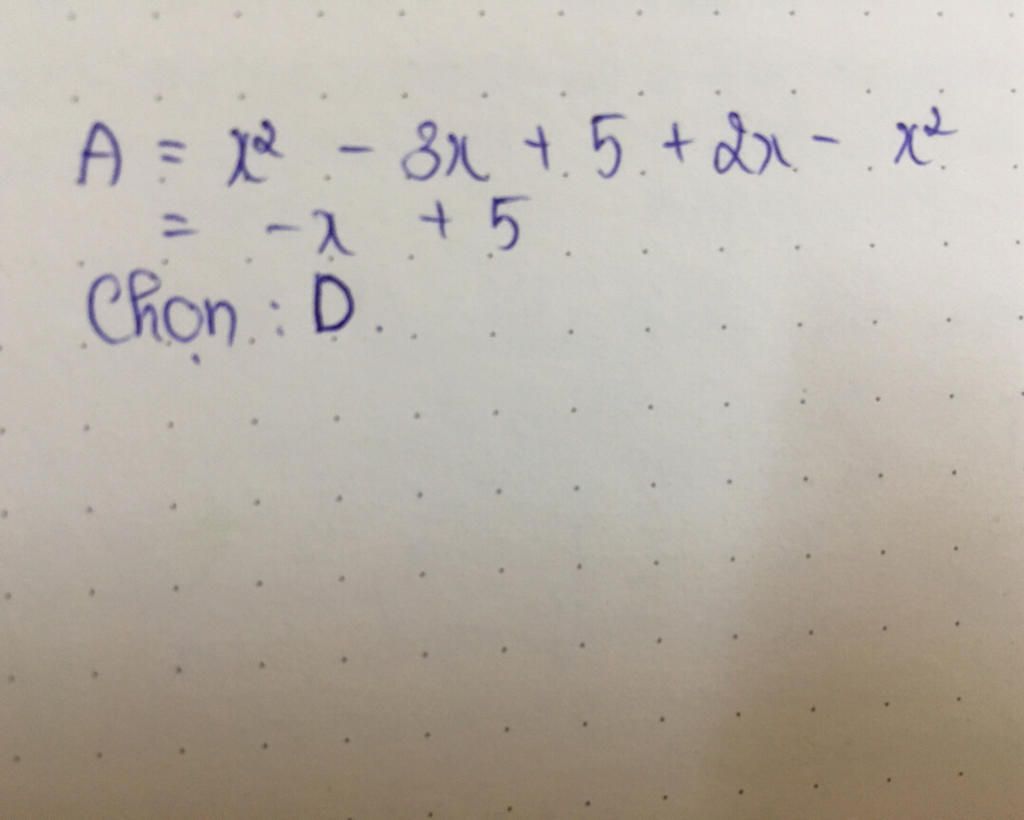 A = x² - 3x + 5 + 2x - x²
= -x + 5
Chọn : D.